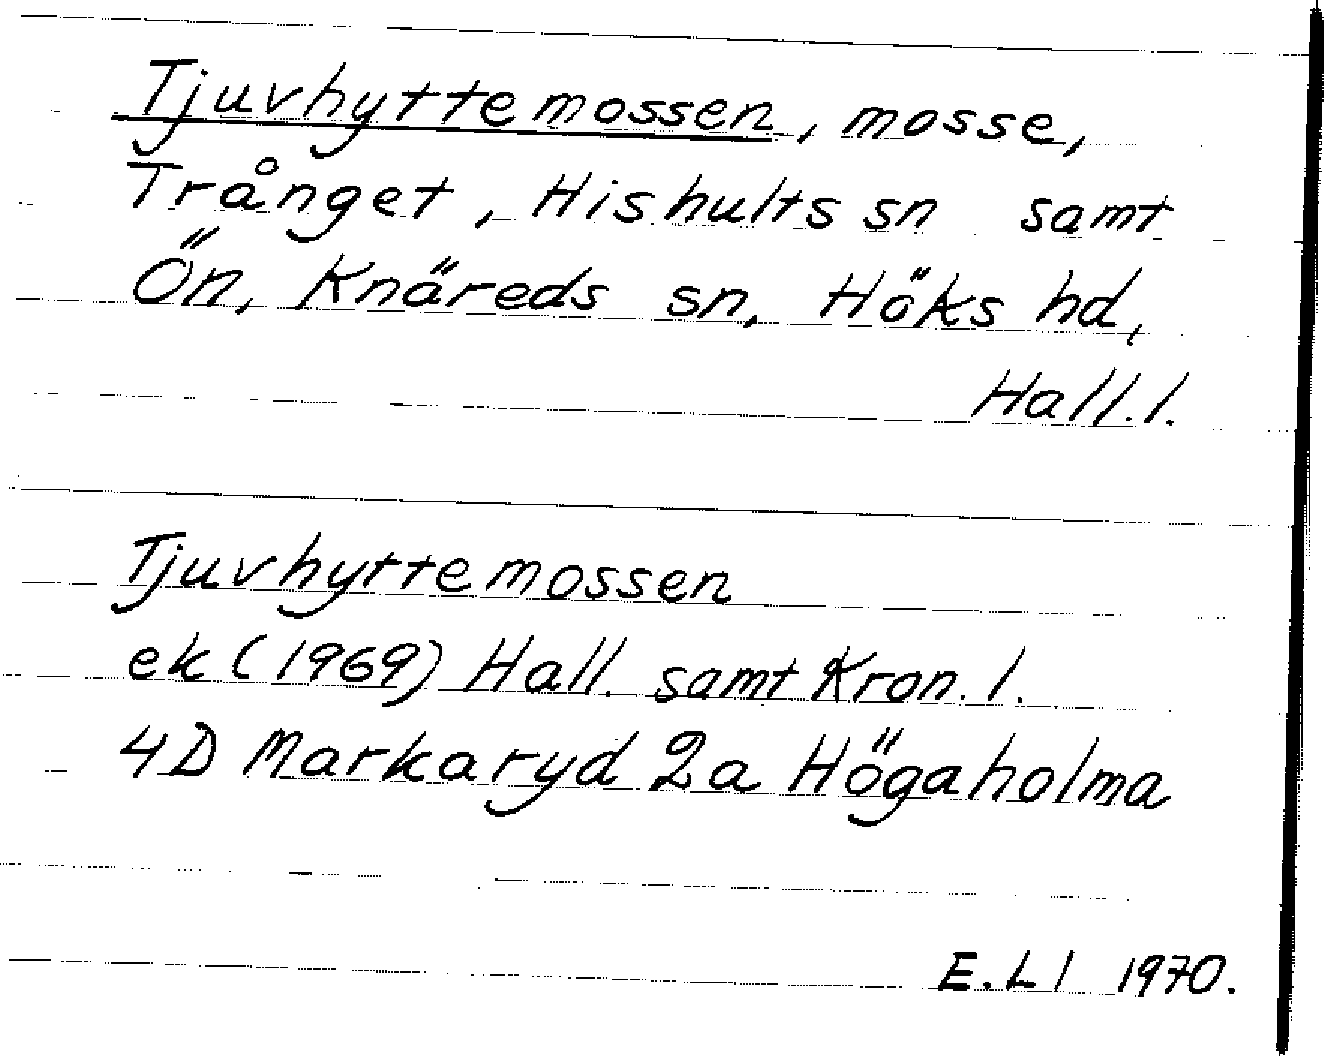 Tjuvhyttemossen, mosse,
Trånget, Hishults sn samt
Ön, Knäreds sn, Höks hd,
Hall.l.
Tjuvhyttemossen
ek (1969) Hall. samt Kron.l.
4D Markaryd 2a Högaholma
E.Ll 1970.